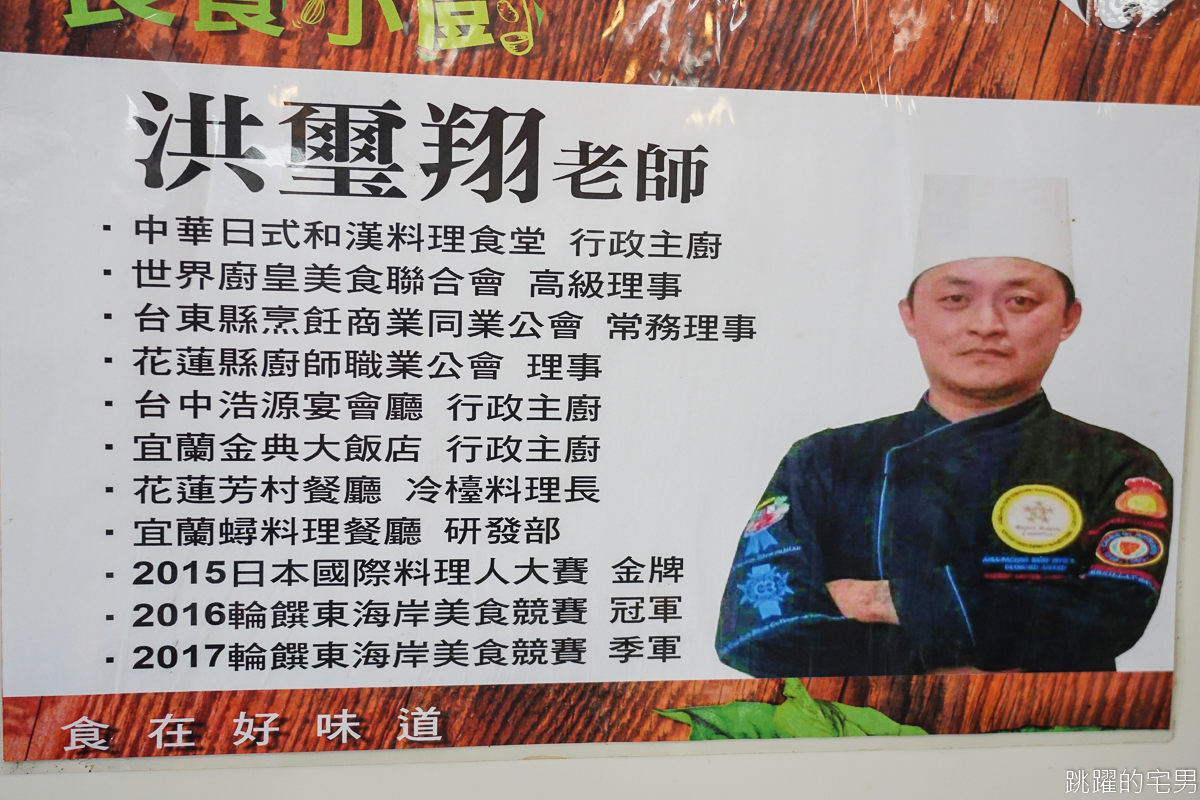 良食小廚
洪璽翔老師
· 中華日式和漢料理食堂 行政主廚
· 世界廚皇美食聯合會 高級理事
· 台東縣烹飪商業同業公會 常務理事
· 花蓮縣廚師職業公會 理事
· 台中浩源宴會廳 行政主廚
· 宜蘭金典大飯店 行政主廚
· 花蓮芳村餐廳 冷檯料理長
· 宜蘭蟳料理餐廳 研發部
· 2015日本國際料理人大賽 金牌
· 2016輪饌東海岸美食競賽 冠軍
· 2017輪饌東海岸美食競賽 季軍
食在好味道
跳躍的宅男